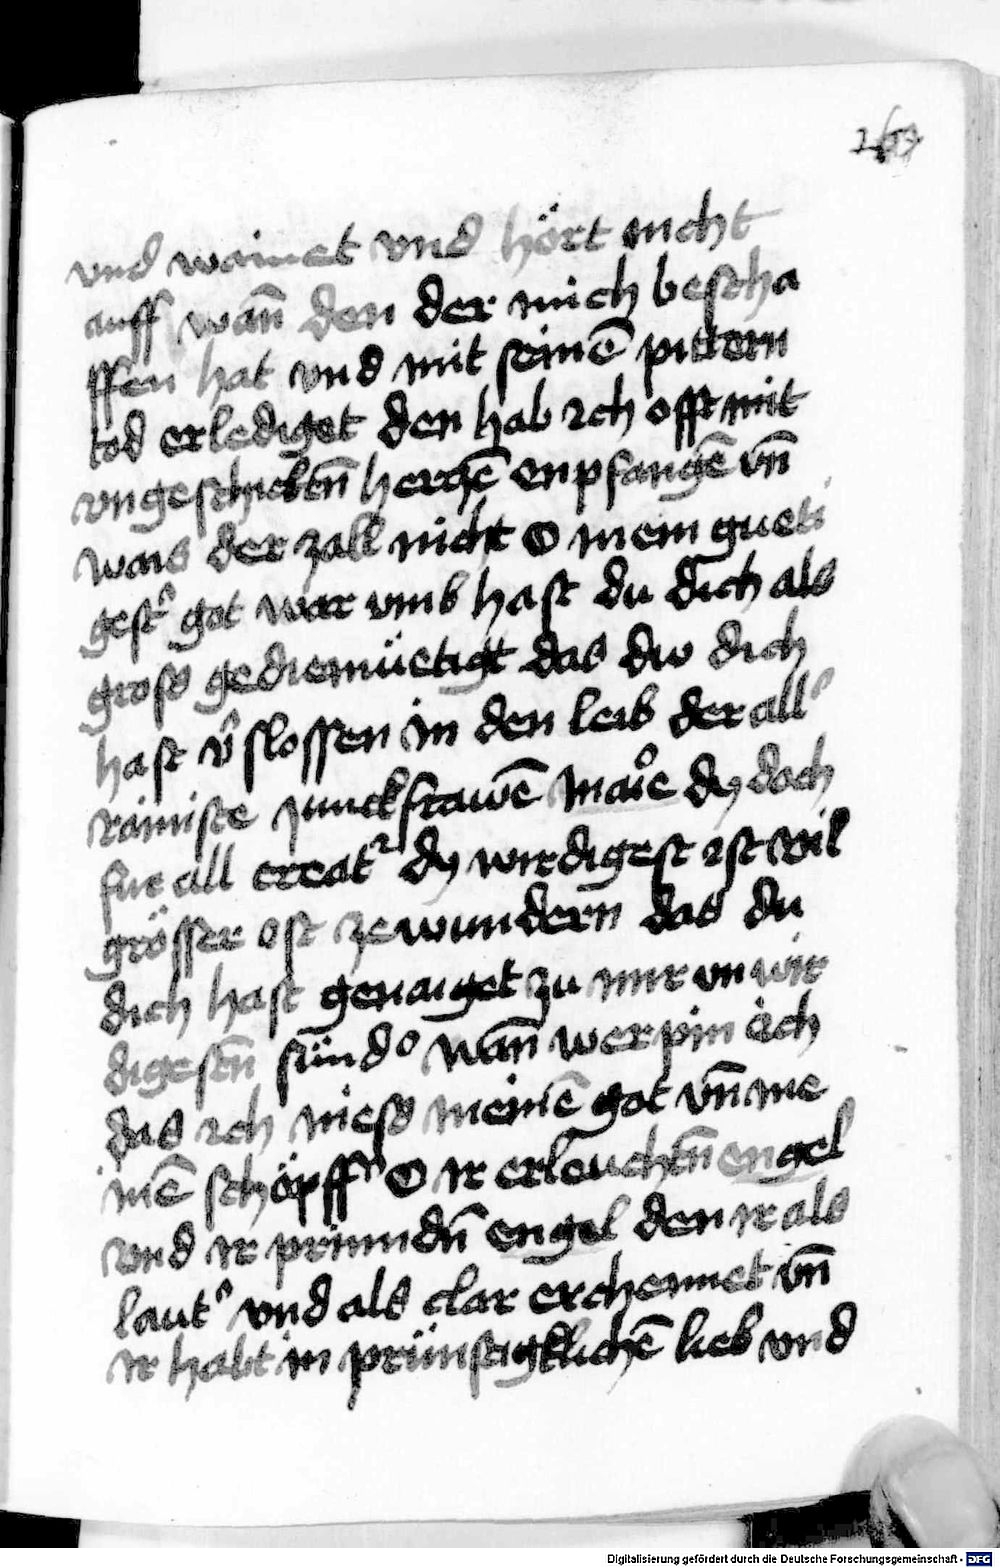 vnd wainet vnd hört nicht
auff wan̄ den der mich bescha
ffen hat vnd mit seinē pittern
tod erlediget den hab ich offt mit
vngeschickten̄ herczē enpfangē vn̄
wais der zall nicht O mein gueti
gestˀ got war vmb hast du dich als
gross gediemüetigt das dw dich
hast vˀslossen in den leib der allˀ
rainiste Junckfrawē Maͦie dy doch
fur all creatˀ dy wirdigest ist vil
grösser ist ze wundern das du
dich hast genaiget zu mir vnwir
digesten̄ sündˀ wan̄ wer pin ich
das ich niess meinē got vn̄ me
inē schöpffˀ O ir erleuchten̄ engel
vnd ir prinnden̄ engel den ir als
lautˀ vnd als clar erchennet vn̄
ir habt in prünstigklichē lieb vnd
Digitalisierung gefördert durch die Deutsche Forschungsgemeinschaft - DFG